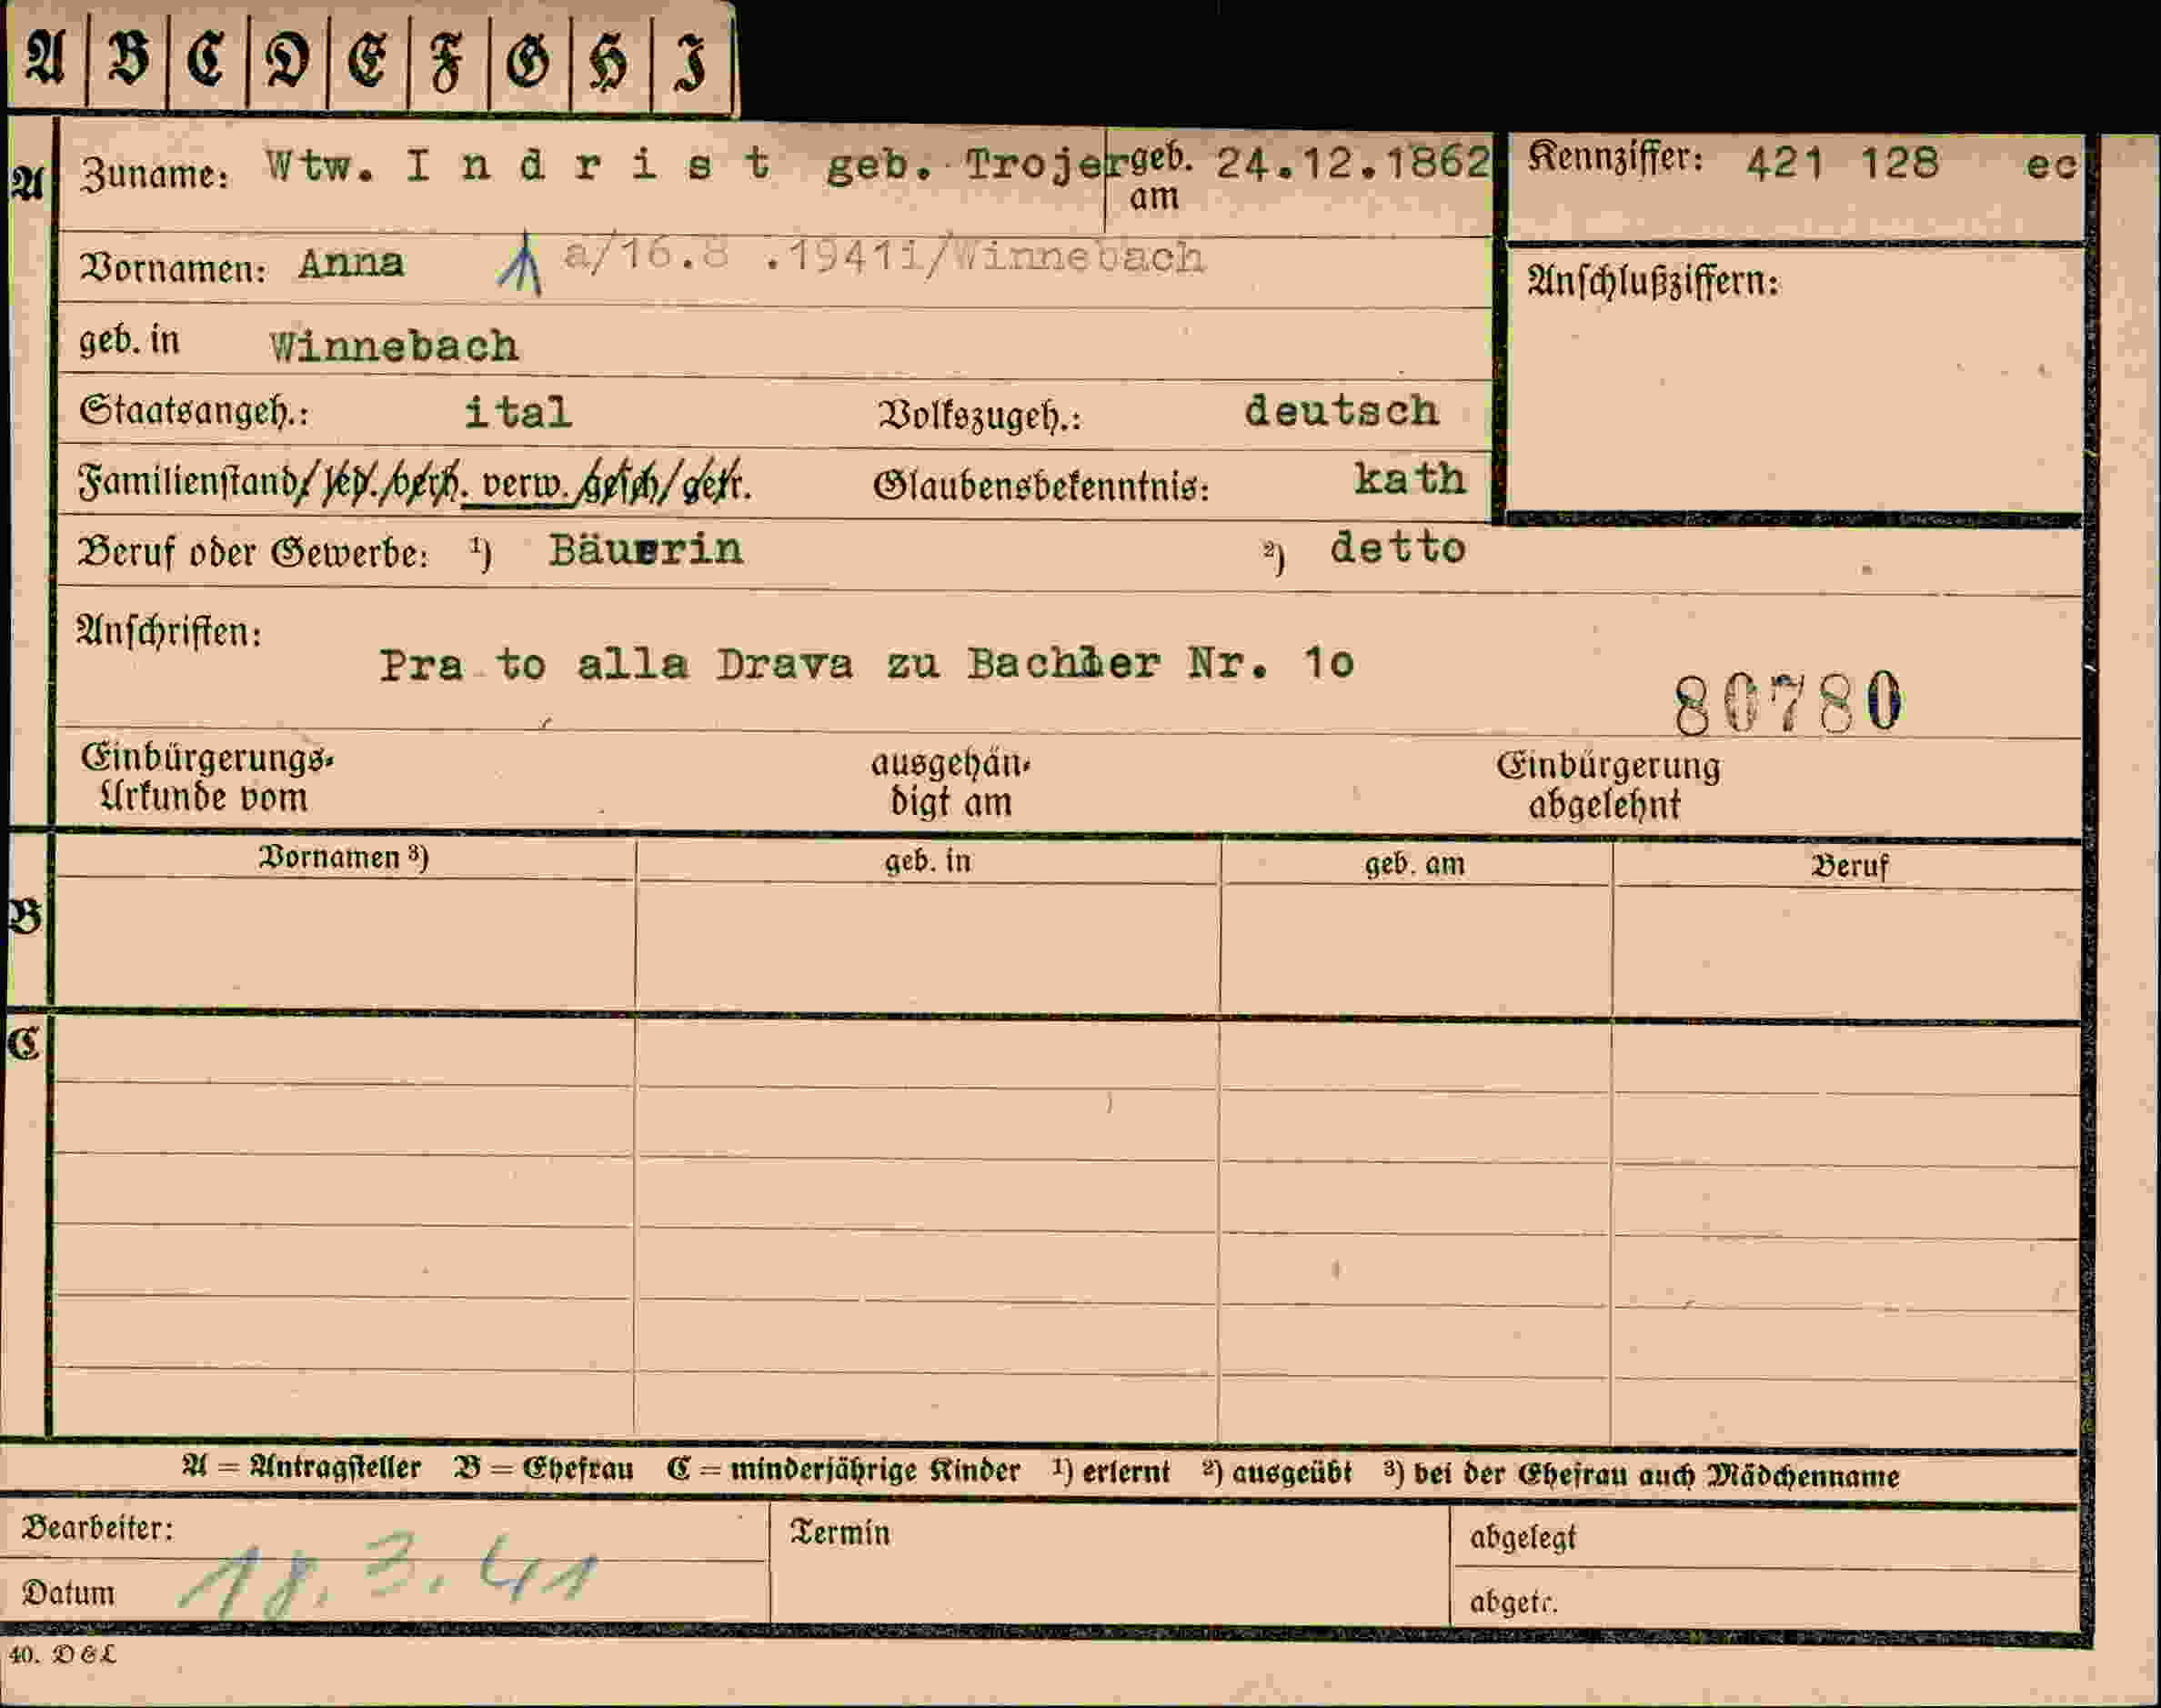 A B C D E F G H I
A Zuname: Wtw. I n d r i s t geb. Trojer geb. am 24.12.1862 Kennziffer: 421 128 ec
Vornamen: Anna a/16.8 .1941i/Winnebach
Anschlußziffern:
geb. in Winnebach
Staatsangeh.: ital Volkszugeh.: deutsch
Familienstand/led./verh. verw./gesch/getr. Glaubensbekenntnis: kath
Beruf oder Gewerbe: ¹) Bäuerin ²) detto
Anschriften:
Pra to alla Drava zu Bachler Nr. 1o
80780
Einbürgerungs-Urkunde vom ausgehändigt am Einbürgerung abgelehnt
Vornamen ³) geb. in geb. am Beruf
B
C
A = Antragsteller B = Ehefrau C = minderjährige Kinder ¹) erlernt ²) ausgeübt ³) bei der Ehefrau auch Mädchenname
Bearbeiter: Termin abgelegt
Datum 18.3.41 abgetr.
40. D & L